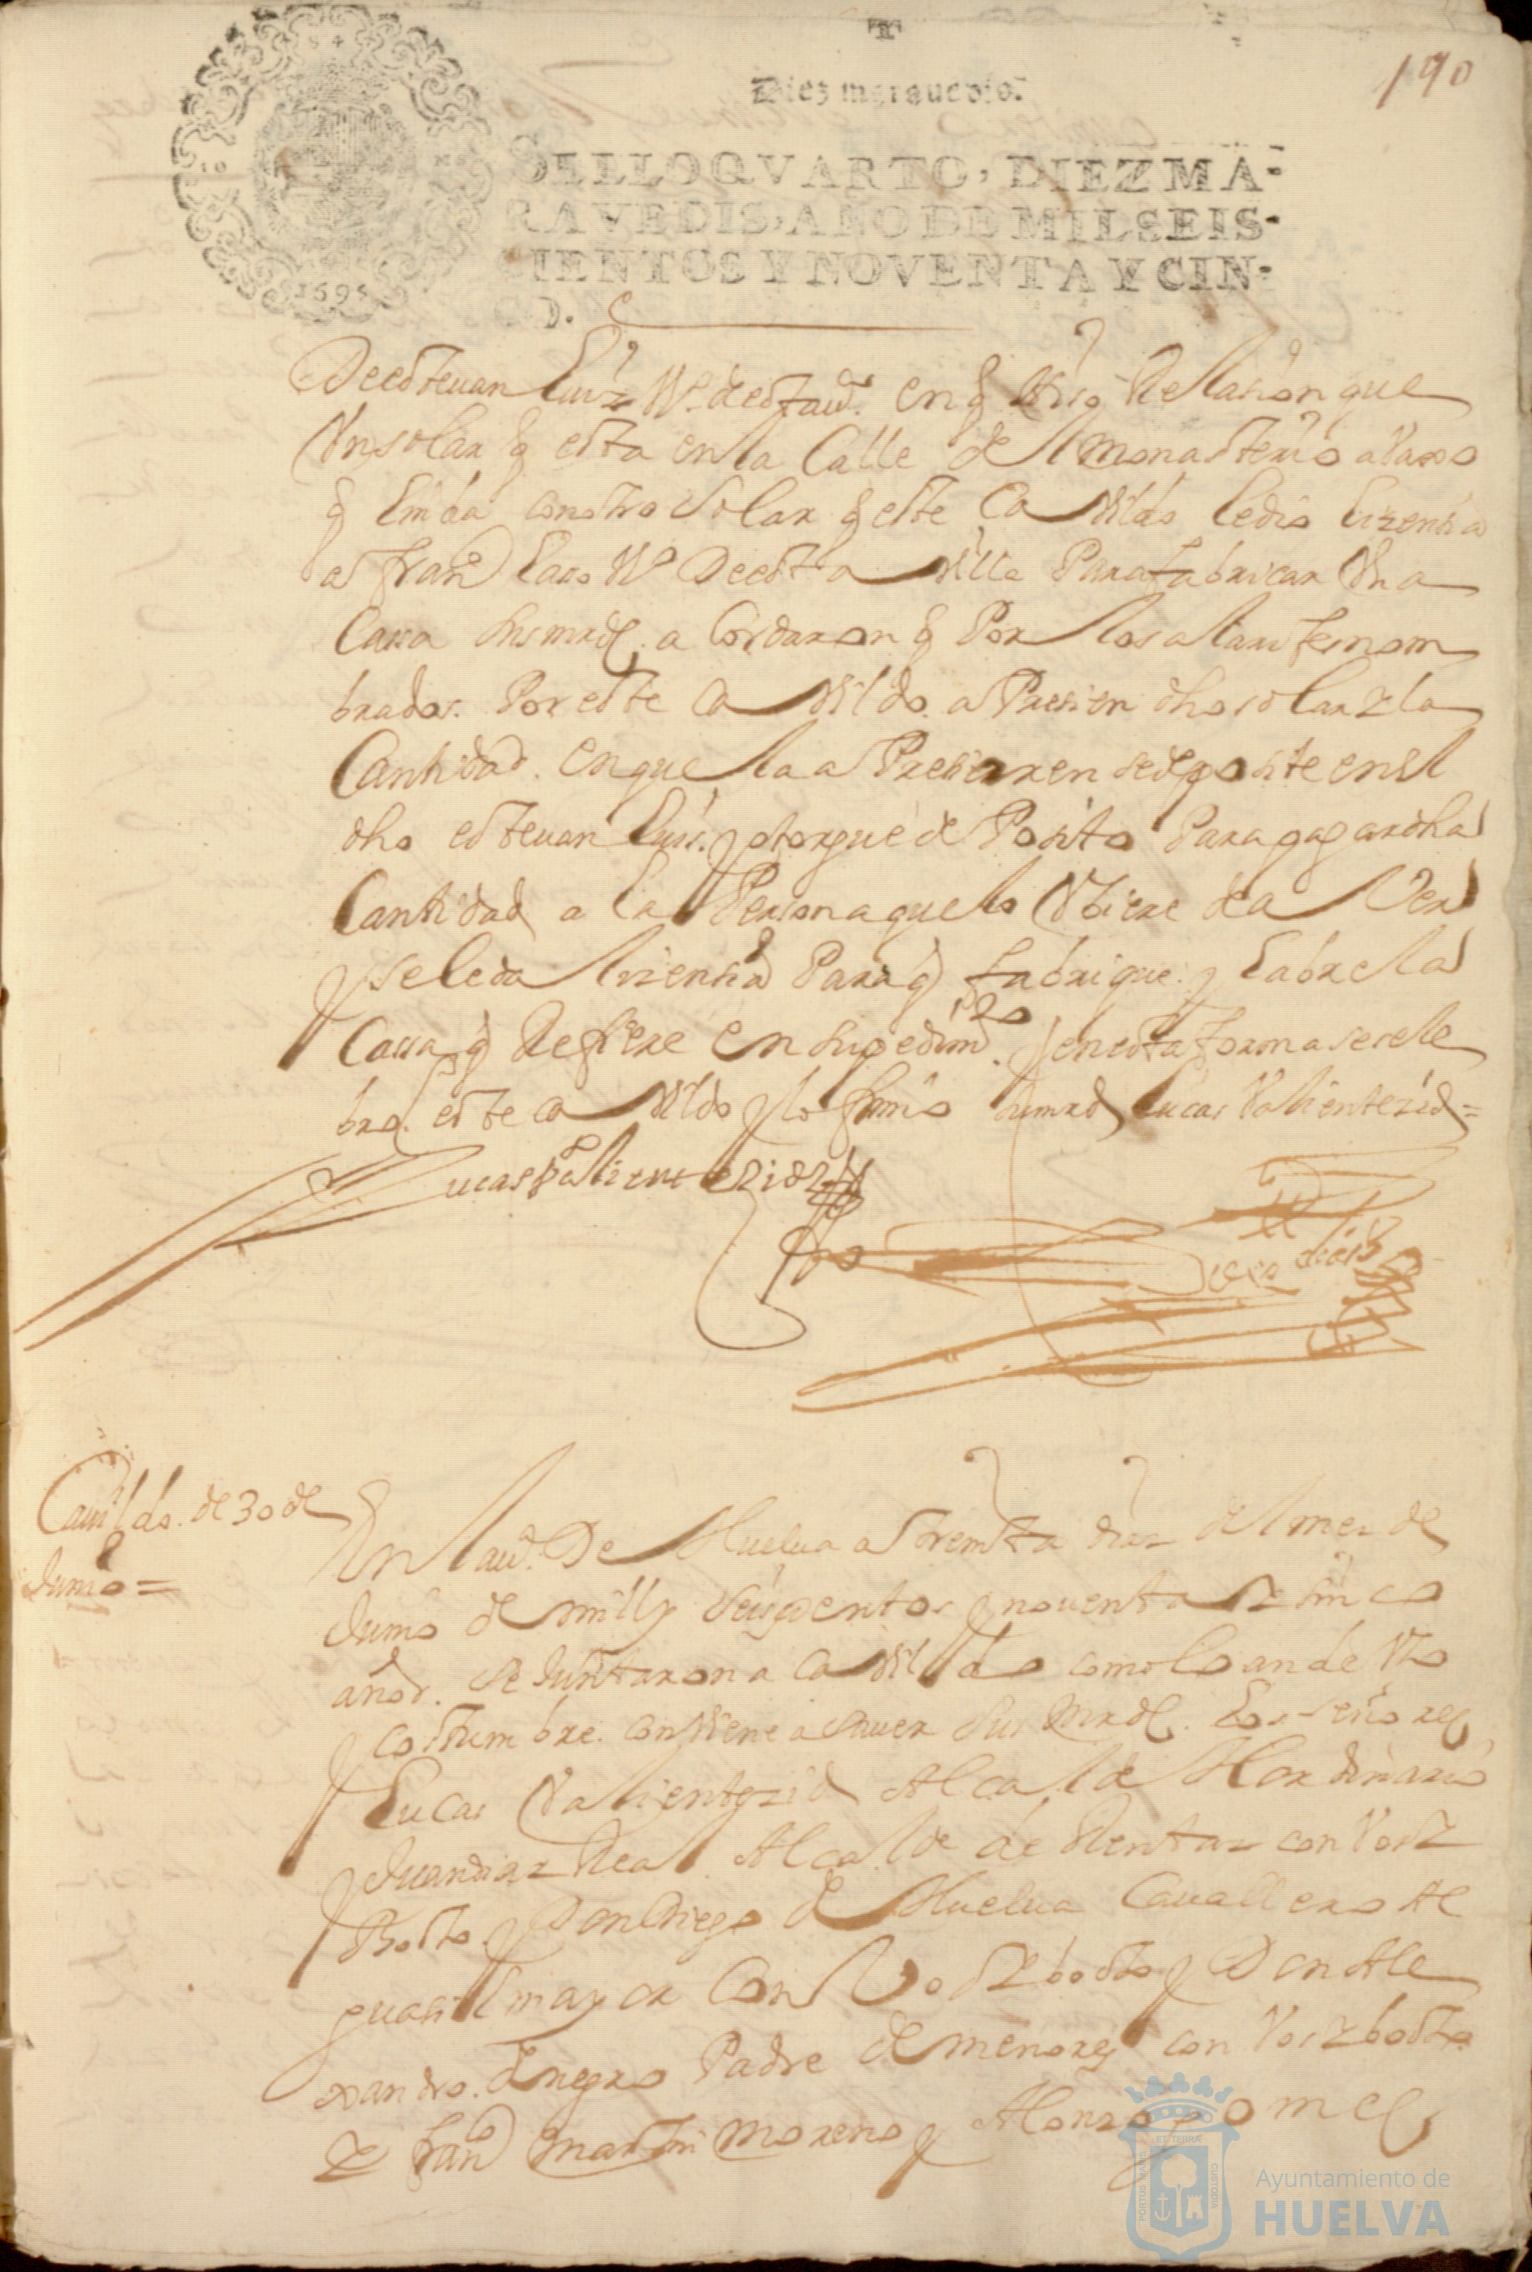 190
Diez marauedis.
SELLO QVARTO, DIEZ MA-
RAVEDIS, AÑO DE MIL SEIS-
CIENTOS Y NOVENTA Y CIN-
CO.
1695
De esteuan Luis Vº de esta uª. en q hiso Relasion que
Vn solar q esta en la Calle de el monasterio abaxo
q linda con otro solar q este Cavildo le dio lizensia
a franco Vº De esta villa Para fabricar Vna
Cassa sus mrds. a Cordaron q Por los alarifes nom
brados. Por este Cavildo. a Presien dho solar z la
Cantidad. en que la a Presiaren se deposite en el
dho esteuan Luis. y otorgue de Posito Para pagar dha
Cantidad a la Persona que lo Vbiere de a Ver
y se le da lizensia Para q fabrique. y Labre la
Cassa q Refiere en su pedimto. y en esta forma se sele
bro. este Cavildo y lo firmo su mrd Lucas Valiente zid =
Lucas Valiente zid
Diego
Cauildo. de 30 de
Junio =
En la uª. De Huelua a treinta dias del mes de
Junio de mill y seisientos y nouenta z sinco
años. se Juntaron a Cavildo como lo an de Vso
y costumbre. conviene a sauer sus mrds. Los señores
Lucas Valiente zid Alcalde Hordinario
y Juan dias Real Alcalde de Rentas con Vos z
Botto y Don Diego de Huelua Cauallero Al
guasil mayor Con Vos z botto y Don Ale
xandro. de negro Padre de menores con Vos z botto
z franco martin moreno y Alonso gomes
PORTUS MARIS ET TERRAE CUSTODIA
Ayuntamiento de
HUELVA